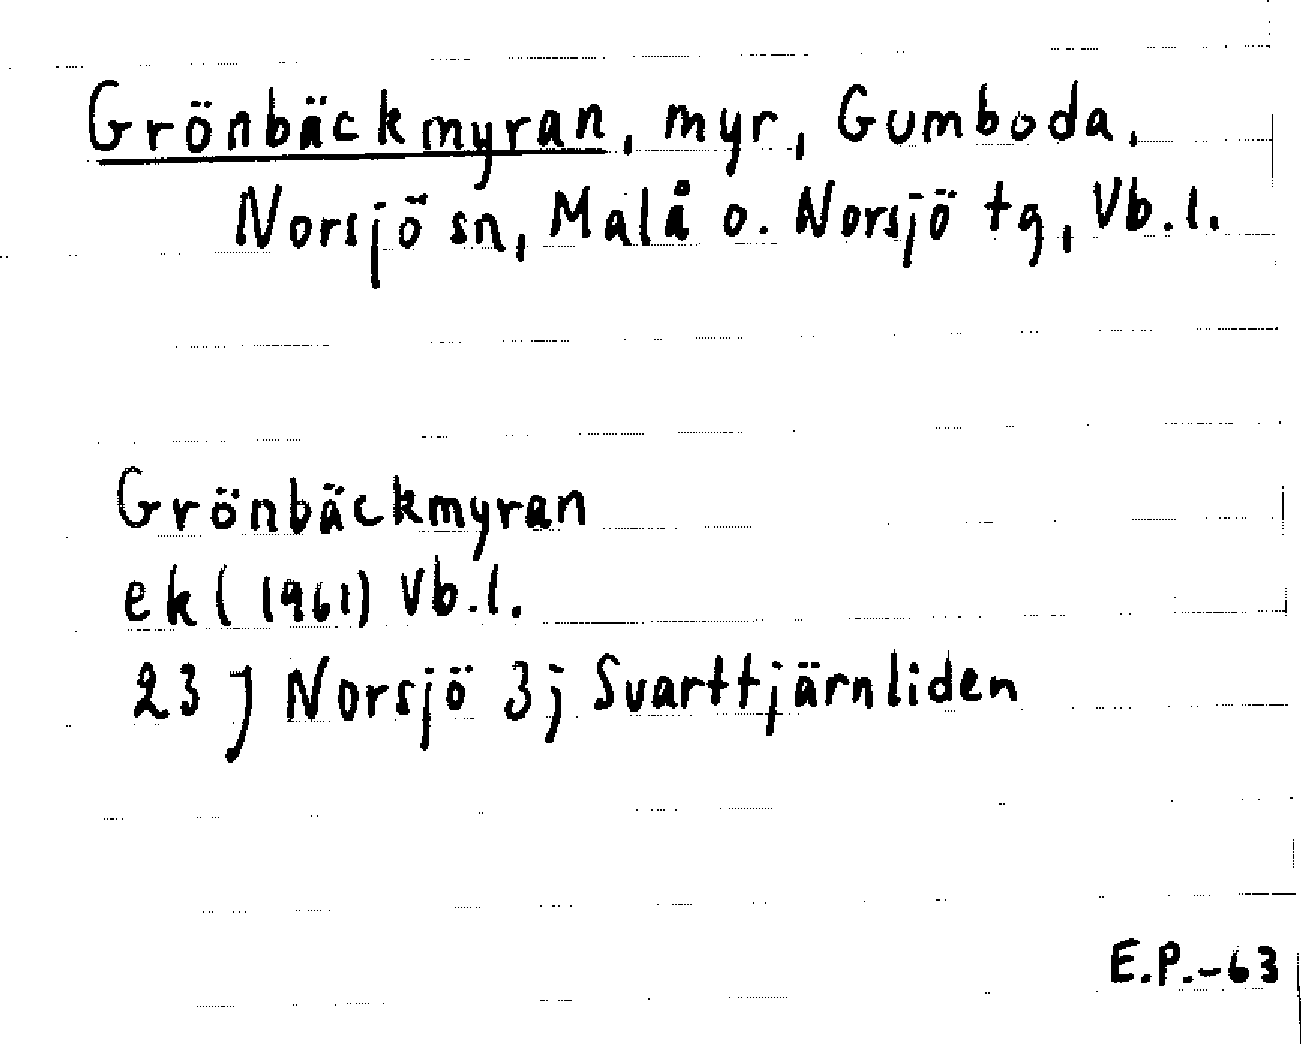 Grönbäckmyran, myr, Gumboda,
Norsjö sn, Malå o. Norsjö tg, Vb.l.
Grönbäckmyran
ek (1961) Vb.l.
23 J Norsjö 3j Svarttjärnliden
E.P.-63